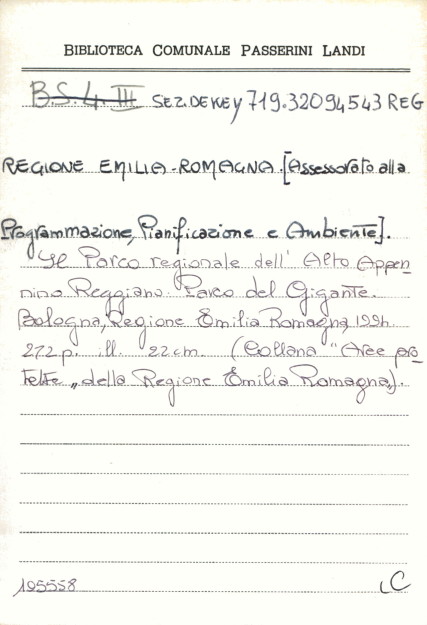 BIBLIOTECA COMUNALE PASSERINI LANDI
B.S. 4. III SEZ. DEWEY 719.32094543 REG
REGIONE EMILIA-ROMAGNA. [Assessorato alla
Programmazione, Pianificazione e Ambiente].
Il Parco regionale dell' Alto Appen
nino Reggiano. Parco del Gigante.
Bologna, Regione Emilia Romagna, 1994.
272 p. ill. 22 cm. (Collana "Aree pro
tette" della Regione Emilia Romagna).
195558